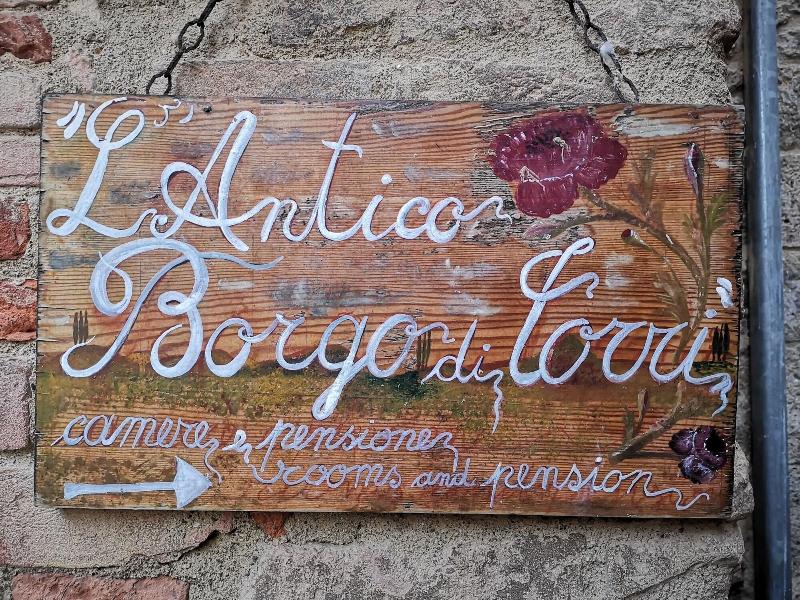 "L'Antico
Borgo di Torri"
camere e pensione
rooms and pension